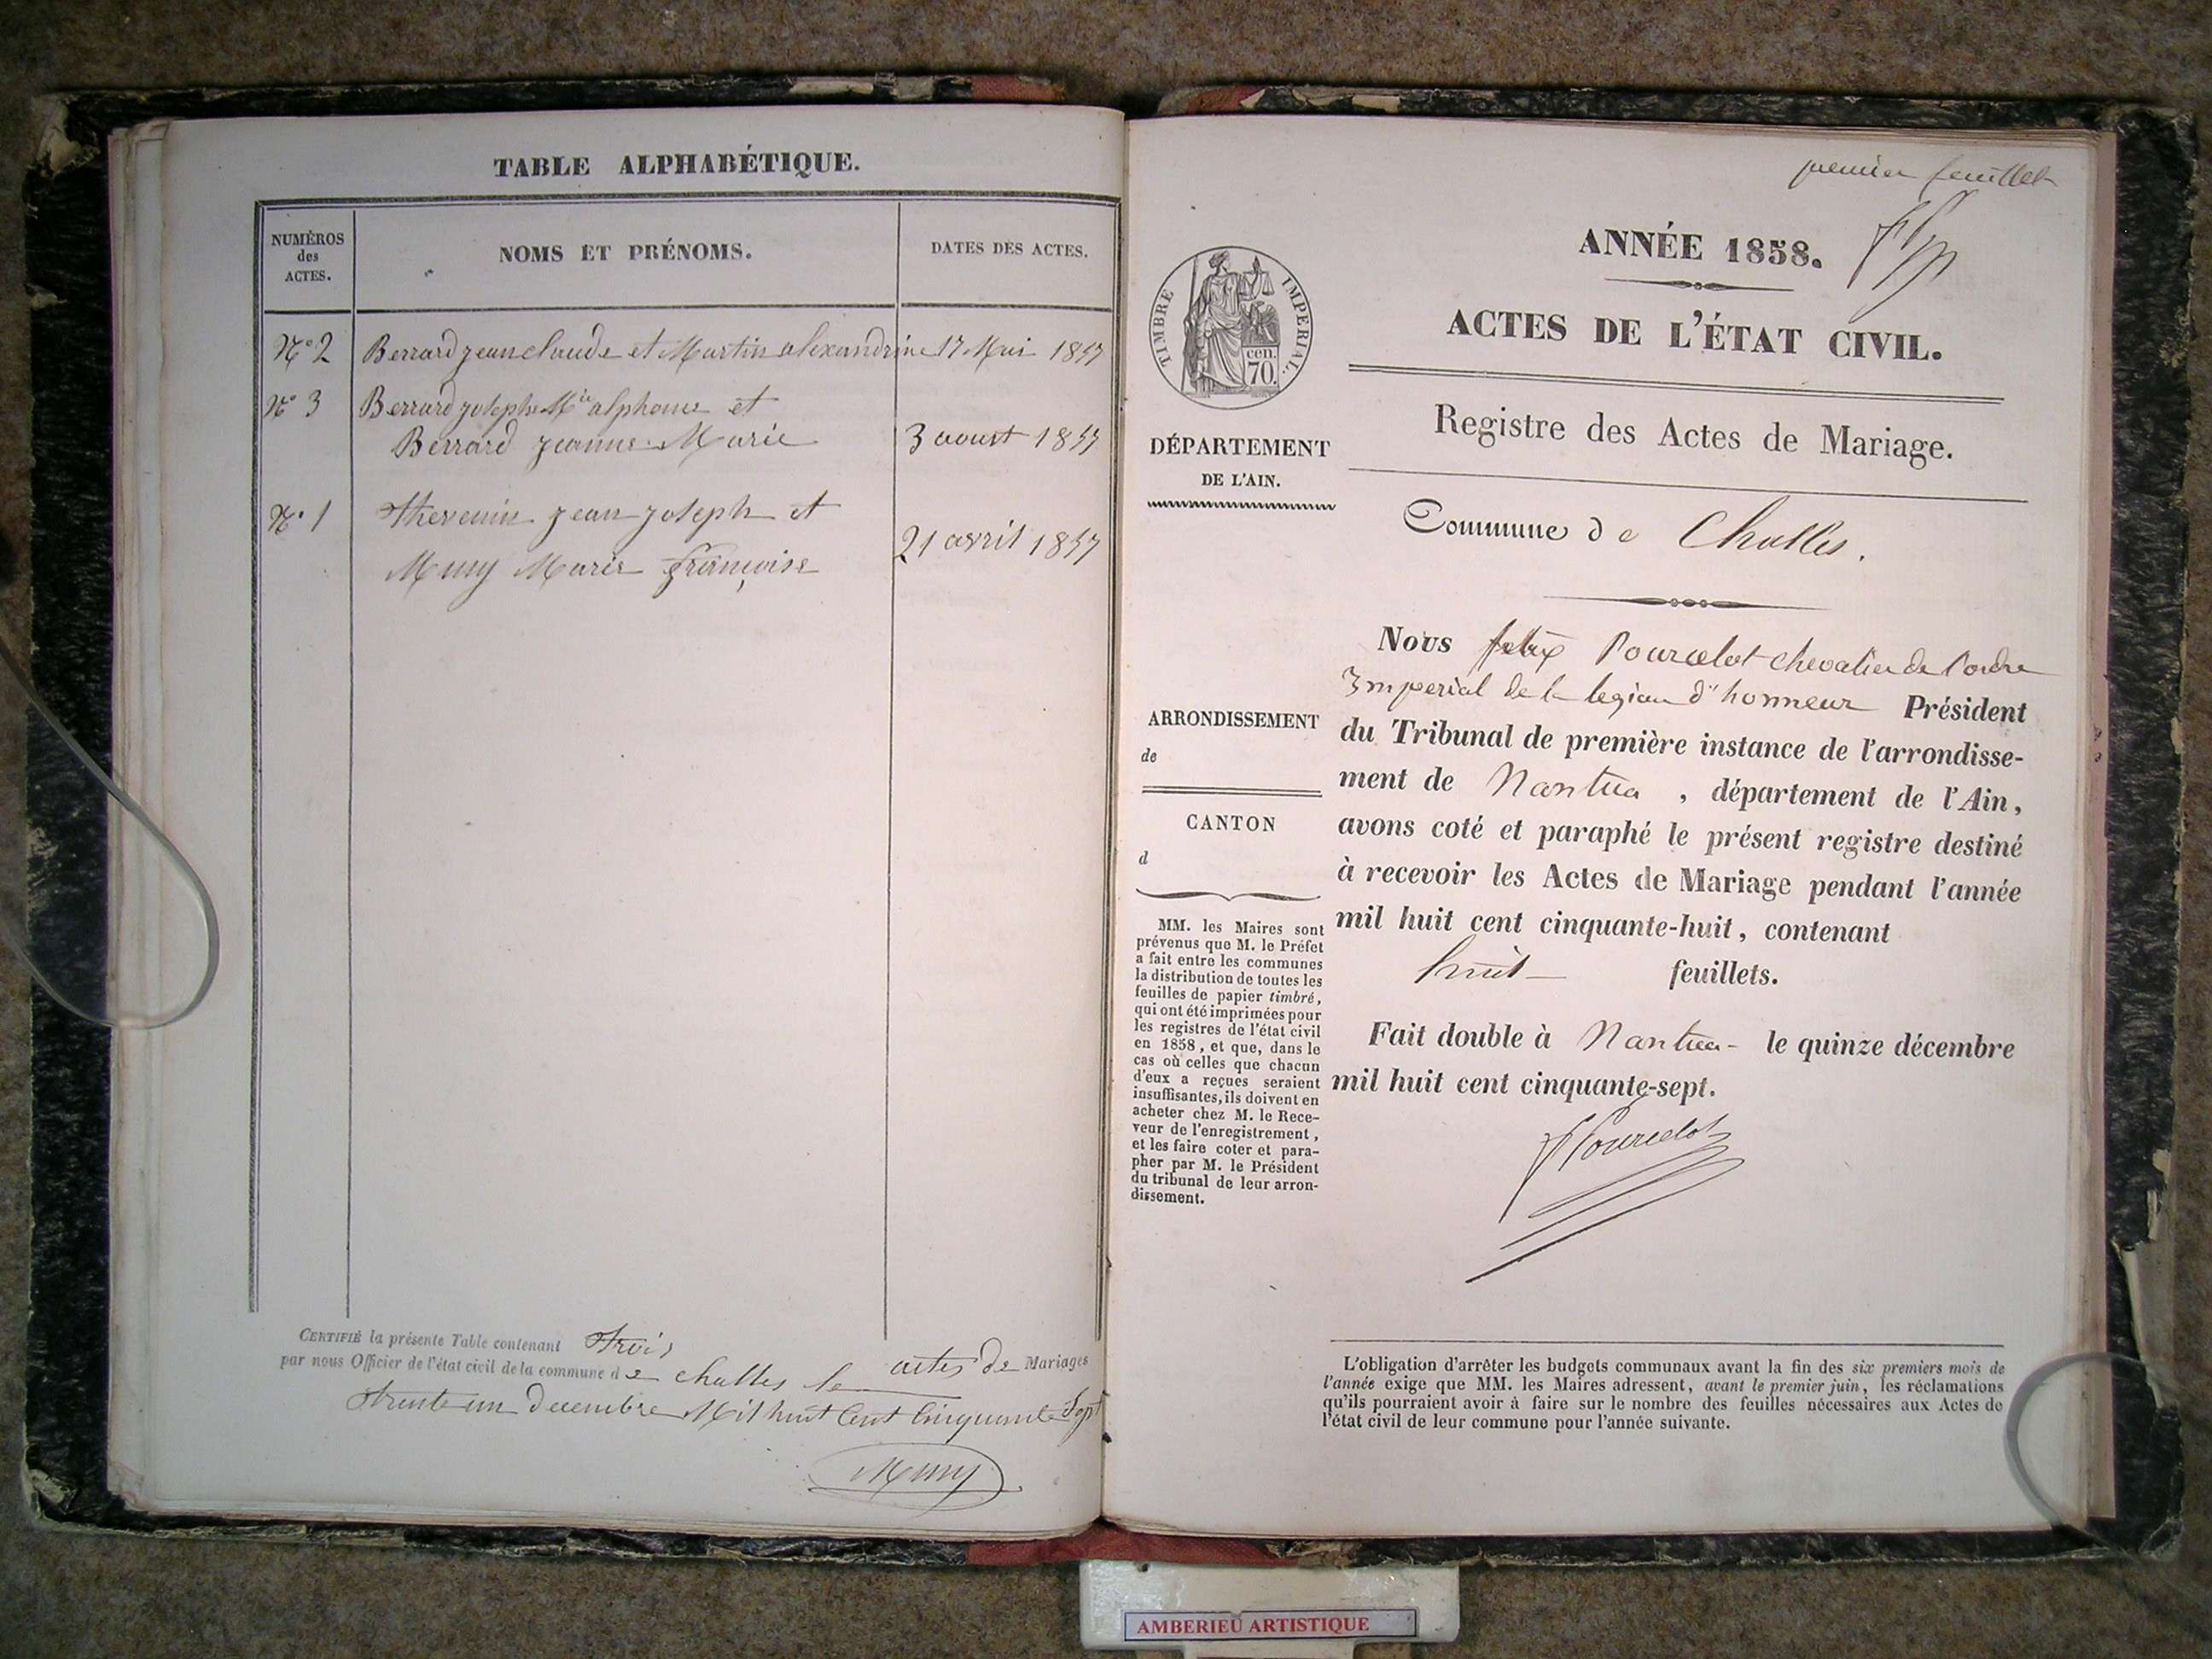 TABLE ALPHABÉTIQUE.
NUMÉROS
des
ACTES.
NOMS ET PRÉNOMS.
DATES DES ACTES.
N° 2 Berrard jean claude et Martin alexandrine 17 Mai 1857
N° 3 Berrard joseph Mie alphonse et
Berrard jeanne Marie 3 aoust 1857
N° 1 thevenin jean joseph et
Muny Marie françoise 21 avril 1857
CERTIFIÉ la présente Table contenant trois
actes de Mariages
par nous Officier de l'état civil de la commune de challes le
trente un decembre Mil huit Cent Cinquante Sept
Muny
premier feuillet
ANNÉE 1858.
ACTES DE L'ÉTAT CIVIL.
Registre des Actes de Mariage.
Commune de Challes.
TIMBRE IMPERIAL.
cen.
70.
DÉPARTEMENT
DE L'AIN.
ARRONDISSEMENT
de
CANTON
d
MM. les Maires sont
prévenus que M. le Préfet
a fait entre les communes
la distribution de toutes les
feuilles de papier timbré,
qui ont été imprimées pour
les registres de l'état civil
en 1858, et que, dans le
cas où celles que chacun
d'eux a reçues seraient
insuffisantes, ils doivent en
acheter chez M. le Rece-
veur de l'enregistrement,
et les faire coter et para-
pher par M. le Président
du tribunal de leur arron-
dissement.
Nous felix Pourcelot chevalier de l'ordre
Imperial de la legion d'honneur Président
du Tribunal de première instance de l'arrondisse-
ment de Nantua, département de l'Ain,
avons coté et paraphé le présent registre destiné
à recevoir les Actes de Mariage pendant l'année
mil huit cent cinquante-huit, contenant
huit feuillets.
Fait double à Nantua le quinze décembre
mil huit cent cinquante-sept.
F Pourcelot
L'obligation d'arrêter les budgets communaux avant la fin des six premiers mois de
l'année exige que MM. les Maires adressent, avant le premier juin, les réclamations
qu'ils pourraient avoir à faire sur le nombre des feuilles nécessaires aux Actes de
l'état civil de leur commune pour l'année suivante.
AMBERIEU ARTISTIQUE